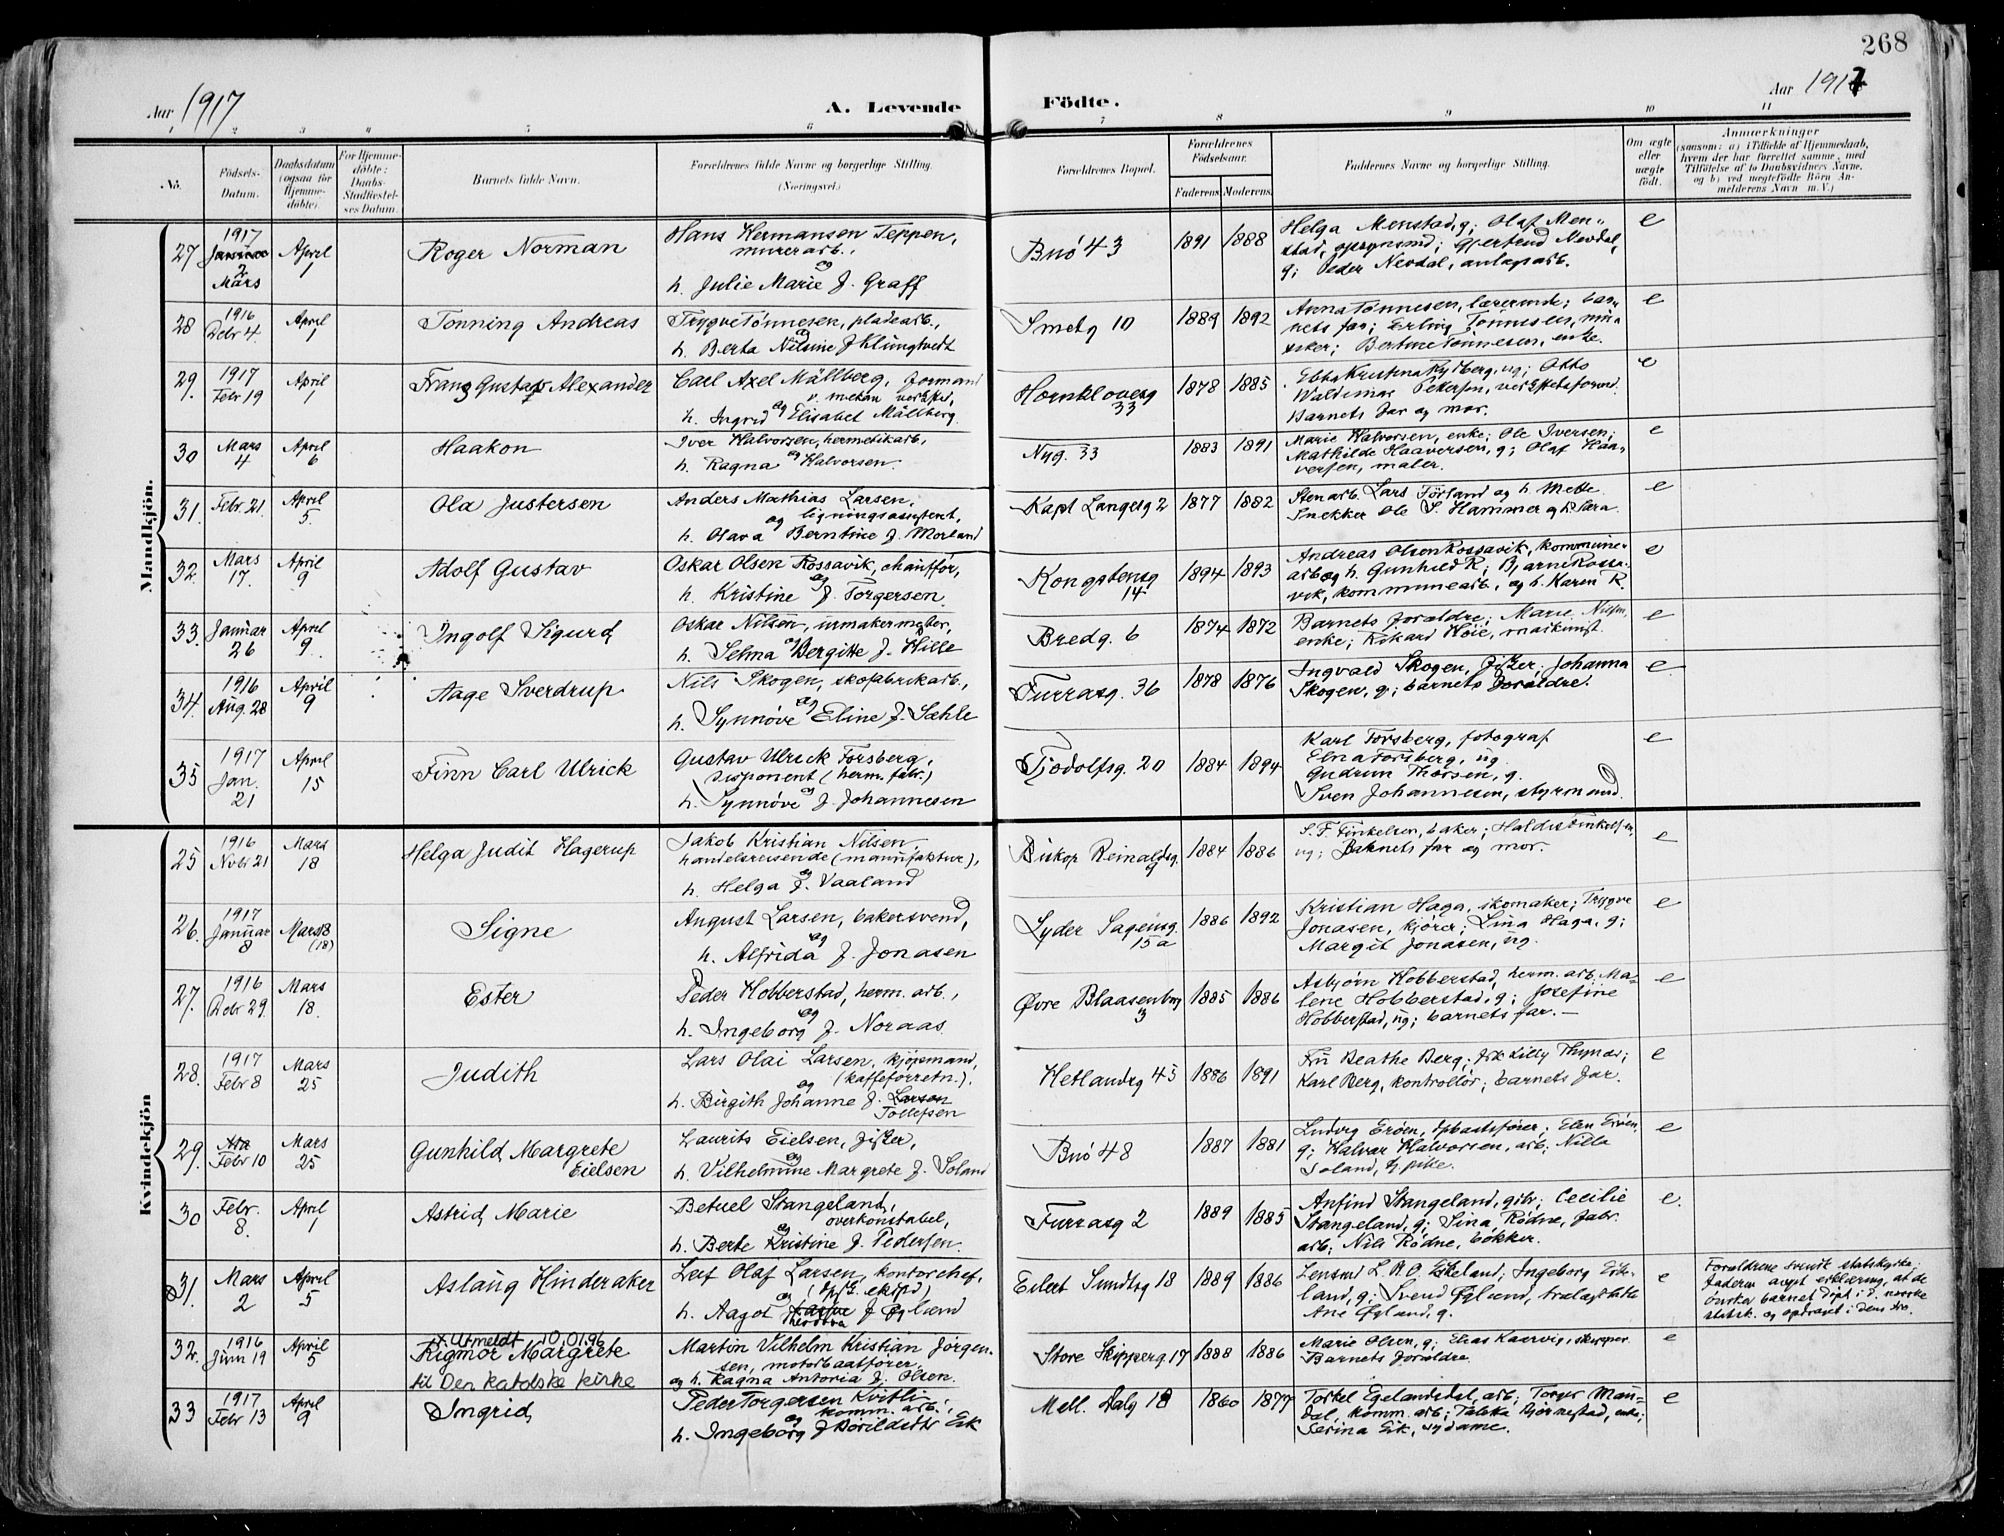 268
Aar 1917
A. Levende
Födte.
Aar 1917
1 2 3 4 5 6 7 8 9 10 11
No.
Födsels-Datum.
Daabsdatum (ogsaa for Hjemme-döbte).
For Hjemme-döbte: Daabs-Stadfæstel-ses Datum.
Barnets fulde Navn.
Forældrenes fulde Navne og borgerlige Stilling. (Næringsvei.)
Forældrenes Bopæl.
Forældrenes Födselsaar.
Faderens Moderens
Faddernes Navne og borgerlige Stilling.
Om ægte eller uægte födt.
Anmærkninger
(saasom: a) i Tilfælde af Hjemmedaab, hvem der har forrettet samme, med Tilföielse af to Daabsvidners Navne, og b) ved uægtefödte Börn An-melderens Navn m. V.)
Mandkjön.
27 1917 Mars 2 April 1 Roger Norman
Hans Hermansen Teppen, murerarb., og h. Julie Marie f. Graff
Buö 43 1891 1888
Helga Menstad, g; Olaf Men-stad, opsynsmd; Gjertrud Nevdal, g; Peder Nevdal, anlagsarb. e
28 1916 Debr 4 April 1 Tonning Andreas
Trygve Tønnesen, pladearb., og h. Berta Nilsine f. Klungtvedt
Smedg 10 1889 1892
Anna Tønnesen, lærerinde; bar-nets far; Erling Tönnesen, Bertine Tönnesen, enke. e
29. 1917 Febr 19 April 1 Franz Gustaf Alexander
Carl Axel Mällberg, formand v. mekan verksted, og h. Ingrid Elisabet Mällberg.
Hornkloversg 33 1878 1885
Ebba Kristina Rydberg, ug; Otto Waldimar Petersen, verkstedsformd. Barnets far og mor. e
30 Mars 4 April 6 Haakon
Iver Halvorsen, hermetikarb, og h. Ragna Halvorsen.
Nyg. 33 1883 1891
Marie Halvorsen, enke; Ole Iversen; Mathilde Haaversen, g; Olaf Haa-versen, maler. e
31. Febr. 21 April 5. Ola Justersen
Anders Mathias Larsen, ligningsassistent, og h. Olava Berntine f. Morland
Kapt Langesg 2 1877 1882
Stenarb. Lars Törland og h. Mette. Snekker Ole S. Hammer og h. Sara e
32. Mars 17. April 9 Adolf Gustav
Oskar Olsen Rossavik, chauffør, og h. Kristine f. Torgersen
Kongstensg 14 1894 1893
Andreas Olsen Rossavik, kommune-arb og h. Gunhild R; Bjarne Rossa-vik, kommunearb. og h. Karen R. e
33. Januar 26 April 9. Ingolf Sigurd
Oskar Nilsen, urmakermester, og h. Selma Bergitte f. Hille
Bredg. 6 1874 1872
Barnets forældre; Marie Nilsen, enke; Rikard Høie, maskinist. e
34. 1916 Aug. 28 April 9 Aage Sverdrup
Nils Skogen, skofabrikarb., og h. Synnøve Eline f. Sæhle
Furrasg. 36 1878 1876
Ingvald Skogen, fisker. Johanna Skogen, g; barnets forældre. e
35 1917 Jan. 21 April 15 Finn Carl Ulrick
Gustav Ulrick Forsberg, disponent (herm. fabr.) og h. Synnöve f. Johannesen
Tjodolfsg. 20 1884 1894
Karl Forsberg, fotograf
Elna Forsberg, ug
Gudrun Thorsen, g.
Sven Johannesen, styrmand. e
Kvindekjön
25 1916 Nobr 21 Mars 18 Helga Judit Hagerup
Jakob Kristian Nilsen, handelsreisende (manufaktur), og h. Helga f. Vaaland
Biskop Reinaldsg. 9 1884 1886
S. F. Finkelsen, baker; Haldis Finkelsen, ug; Barnets far og mor. e
26. 1917 Januar 8 Mars 18 (18) Signe
August Larsen, bakersvend, og h. Alfrida f. Jonasen
Lyder Sagensg. 15a 1886 1892
Kristian Haga, skomaker; Trygve Jonasen, kjører; Lina Haga, g; Margit Jonasen, ug. e
27. 1916 Debr 29. Mars 18. Ester
Peder Hobberstad, herm. arb., og h. Ingeborg f. Noraas
Øvre Blaasenborg 3 1885 1886
Asbjørn Hobberstad, herm. arb. Ma-lene Hobberstad, g; Josefine Hobberstad, ug; barnets far. e
28. 1917 Febr 8 Mars 25 Judith
Lars Olai Larsen, kjøpmand, (kaffeforretn.). og h. Birgith Johanne f. Larsen Tollefsen
Hetlandsg 45 1886 1891
Fru Beathe Berg; frk Lilly Thymes; Karl Berg, kontrollör; barnets far. e
29. Febr 10 Mars 25 Gunhild Margrete Eielsen
Laurits Eielsen, fisker, og h. Vilhelmine Margrete f. Soland
Buö 48 1887 1881
Ludvig Erøen, Elen Erøen, g; Halvar Halvorsen, arb; Nilla Soland, pike. e
30 Febr. 8. April 1 Astrid Marie
Betuel Stangeland, overkonstabel, og h. Berte Kristine f. Pedersen
Furrasg 2 1889 1885
Anfind Stangeland, gbr; Cecilie Stangeland, g; Sina Rødne, fabr. arb; Nils Rødne, bøkker. e.
31. Mars 2 April 5 Aslaug Hinderaker
Leif Olaf Larsen, kontorchef, og h. Aagot Theodora f. Øglænd
Eilert Sundtsg 18 1889 1886
Lensmd L. A. O. Eikeland; Ingeborg Eike-land, g; Svend Øglænd, Ane Øglænd, g. e
Forældrene svensk statskyrka; faderen avgit erklæring, at de ønsker barnet døpt i d. norske statsk. og opdraget i dens tro.
32. 1916 Juni 19 April 5 Rigmor Margrete
x Utmeldt 10.01.96 til Den katolske kirke
Martin Vilhelm Kristian Jörgen-sen, motorbaatfører, og h. Ragna Antonia f. Olsen.
Store Skipperg. 17 1888 1886
Marie Olsen, g; Elias Kaarvig, skipper. Barnets forældre. e
33 1917 Febr 13 April 9 Ingrid
Peder Torgersen Kvitlin, komm. arb., og h. Ingeborg f Borildsdtr Eik
Mell. Dalg 18 1860 1877
Torkel Egelandsdal, arb; Torger Maudal, komm. arb; Bjørnestad, enke; Serina Eik, sydame. e